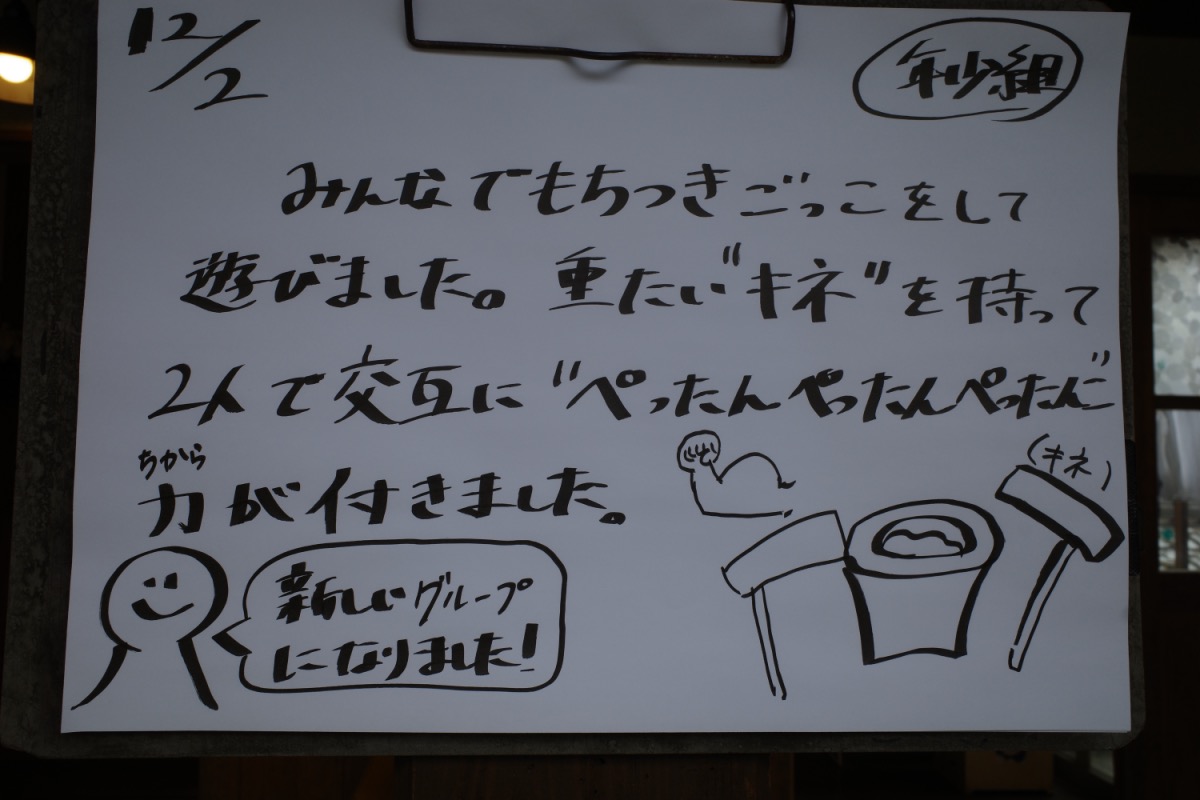 12/2
年少組
みんなでもちつきごっこをして
遊びました。重たい"キネ"を持って
2人で交互に"ぺったんぺったんぺったんこ"
ちから
力が付きました。
(キネ)
新しいグループ
になりました!